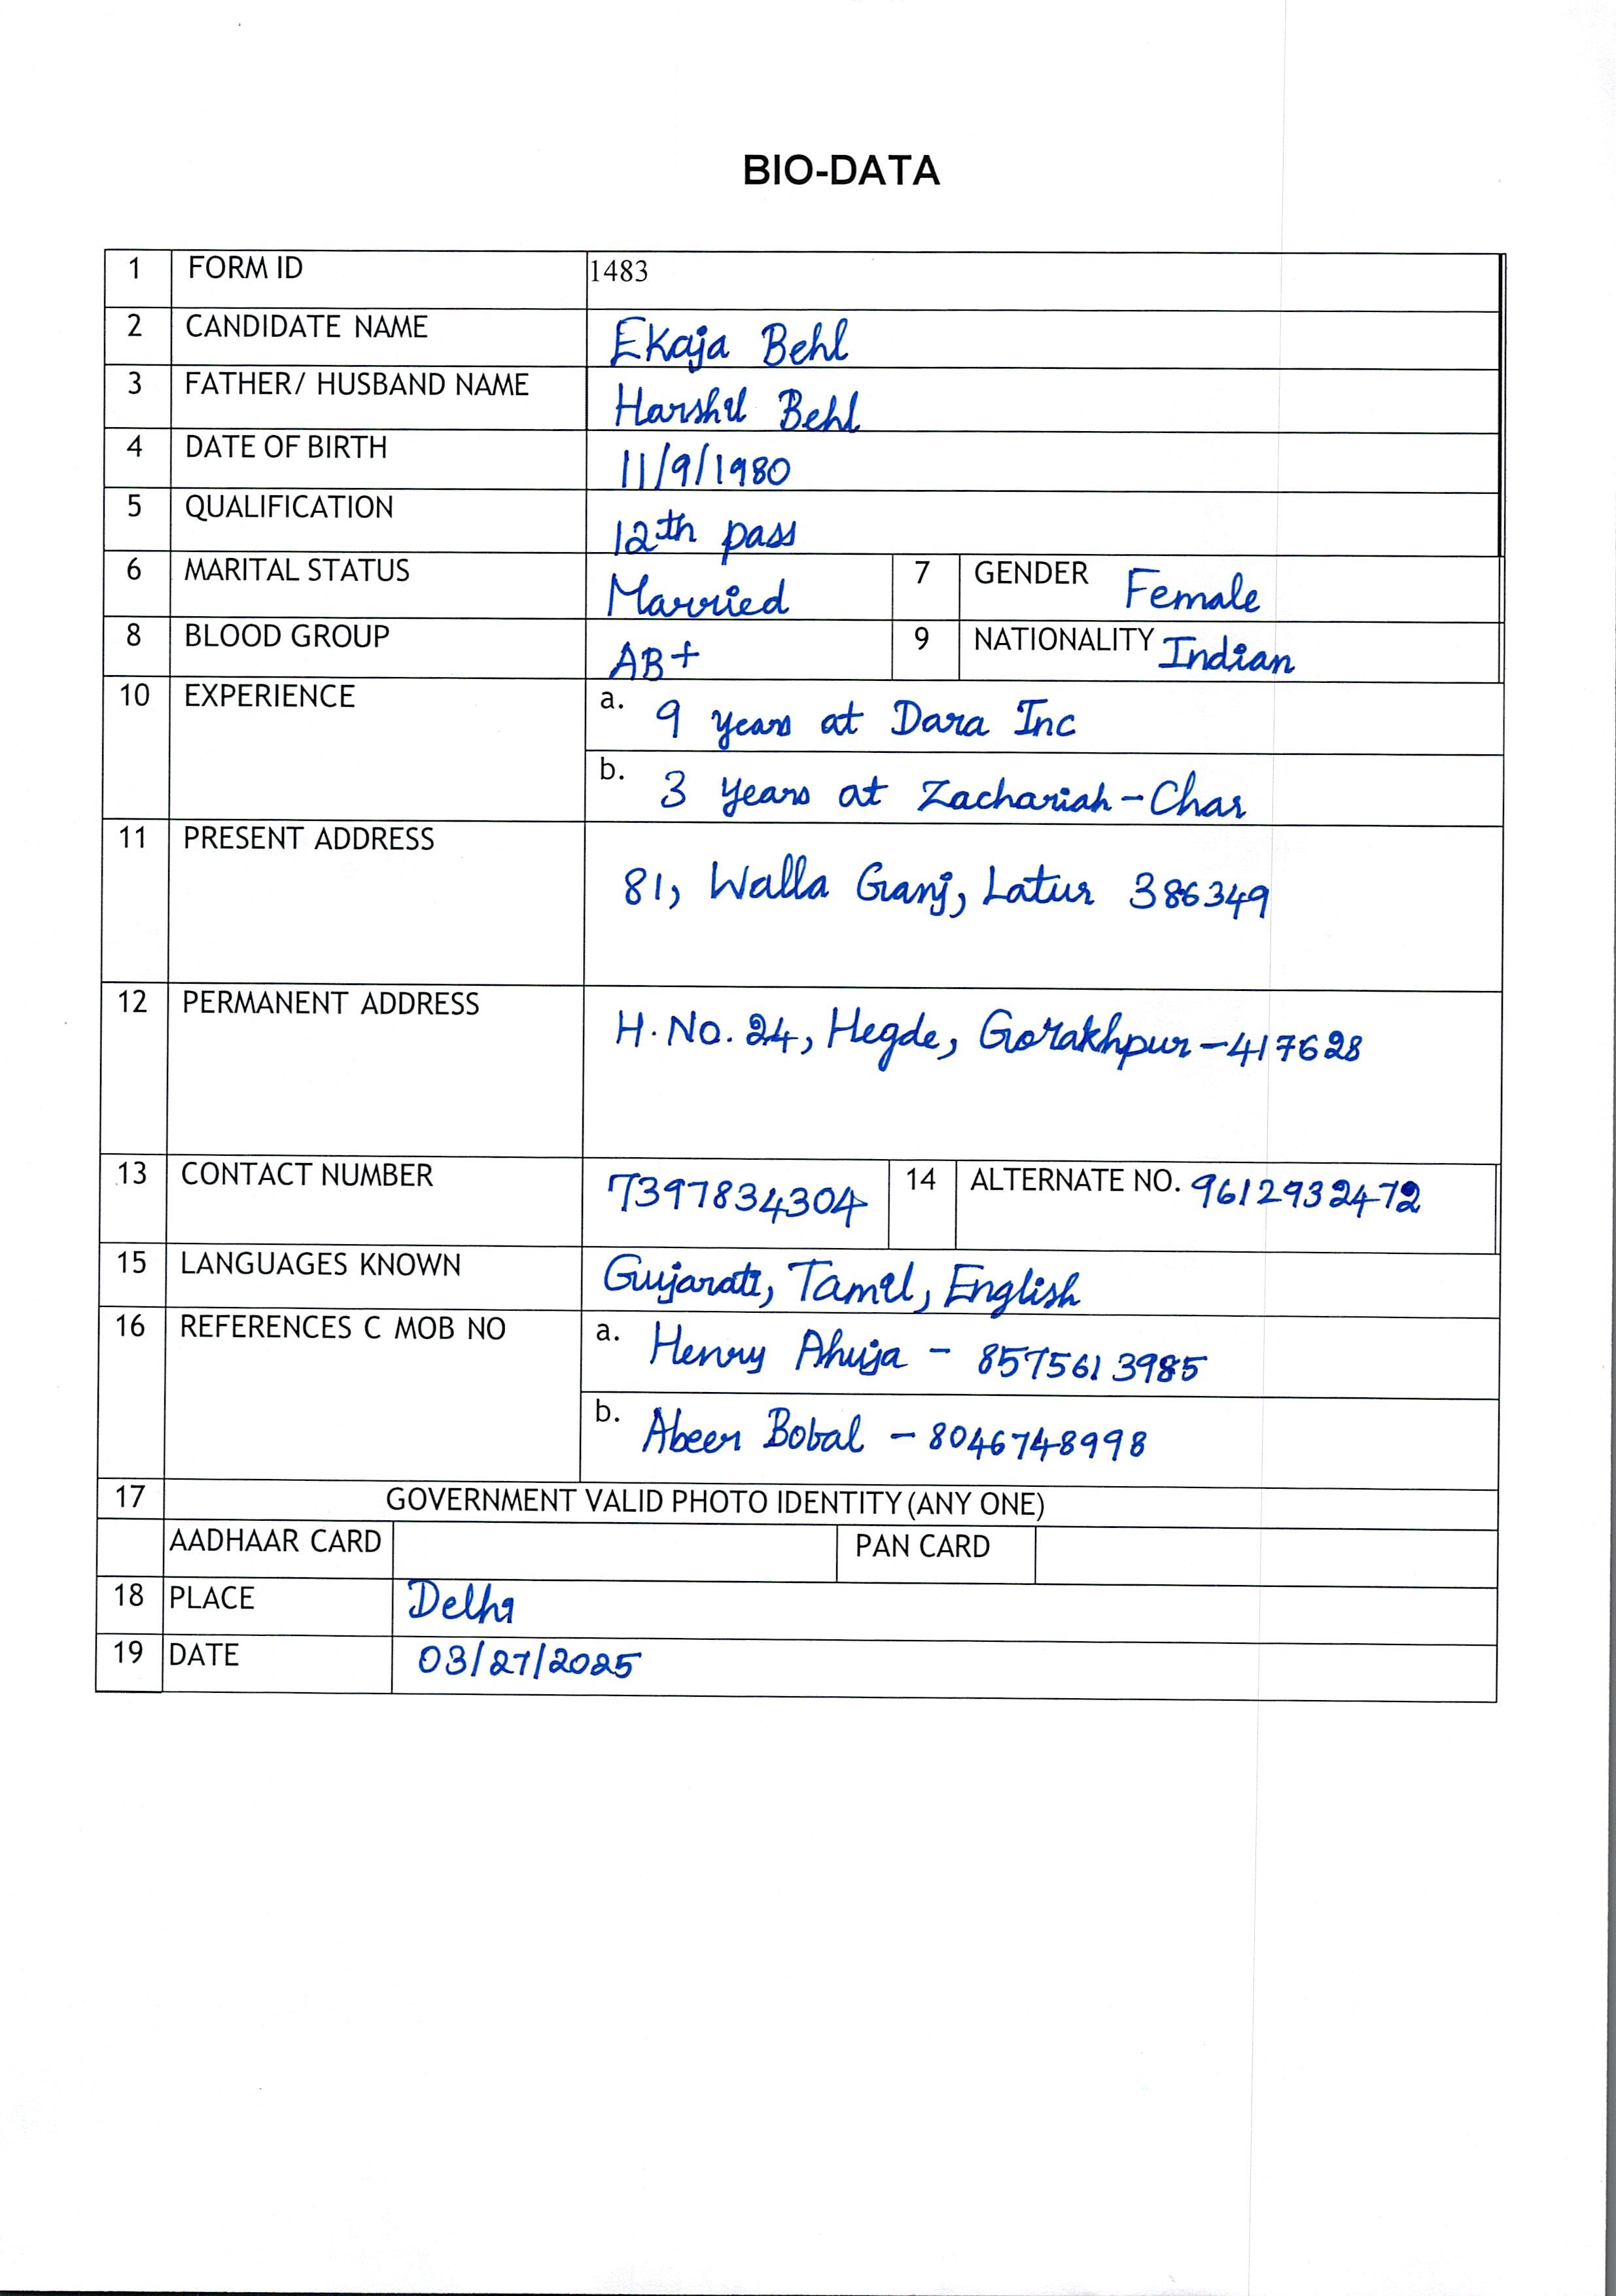 BIO-DATA
1 FORM ID 1483
2 CANDIDATE NAME Ekaja Behl
3 FATHER/ HUSBAND NAME Harshil Behl
4 DATE OF BIRTH 11/9/1980
5 QUALIFICATION 12th pass
6 MARITAL STATUS Married 7 GENDER Female
8 BLOOD GROUP AB+ 9 NATIONALITY Indian
10 EXPERIENCE a. 9 years at Dara Inc
b. 3 years at Zachariah-Char
11 PRESENT ADDRESS
81, Walla Ganj, Latur 386349
12 PERMANENT ADDRESS H.No. 24, Hegde, Gorakhpur-417628
13 CONTACT NUMBER 7397834304 14 ALTERNATE NO. 9612932472
15 LANGUAGES KNOWN Gujarati, Tamil, English
16 REFERENCES C MOB NO a. Henry Ahuja - 8575613985
b. Abeer Bobal - 8046748998
17 GOVERNMENT VALID PHOTO IDENTITY (ANY ONE)
AADHAAR CARD PAN CARD
18 PLACE Delhi
19 DATE 03/27/2025